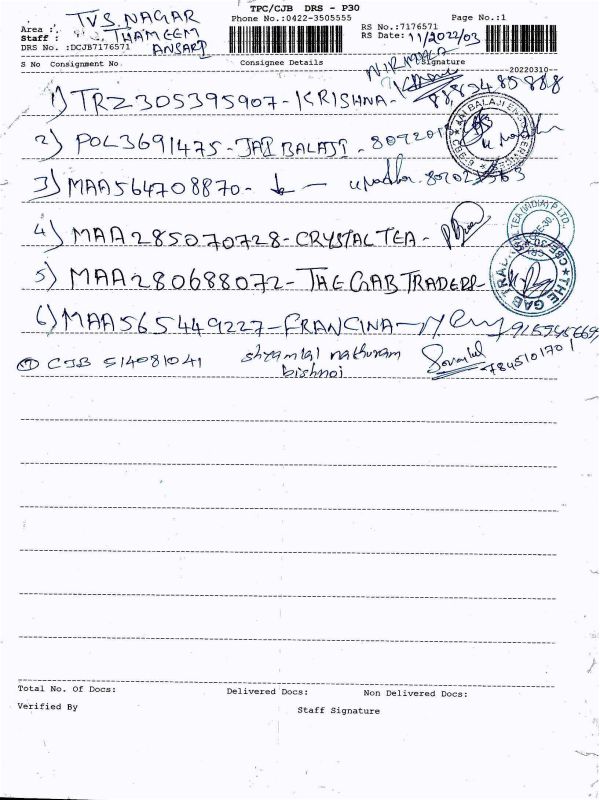 TPC/CJB DRS - P30
Area : TVS. NAGAR Phone No.:0422-3505555 Page No.:1
Staff : THAMEEM ANSARI RS No.:7176571
DRS No. :DCJB7176571 RS Date: 11/2022/03
S No Consignment No Consignee Details Signature
20220310
NIRMALA
1) TRZ305395907 - KRISHNA -
2) POL3691475 - JAI BALAJI -
3) MAA564708870 -
4) MAA285070728 - CRYSTAL TEA -
5) MAA280688072 - THE GAB TRADERS -
6) MAA565449227 - FRANCINA -
7) CJB 514081041 shyamlal nathuram 7845101701
bishnoi
Total No. Of Docs: Delivered Docs: Non Delivered Docs:
Verified By Staff Signature